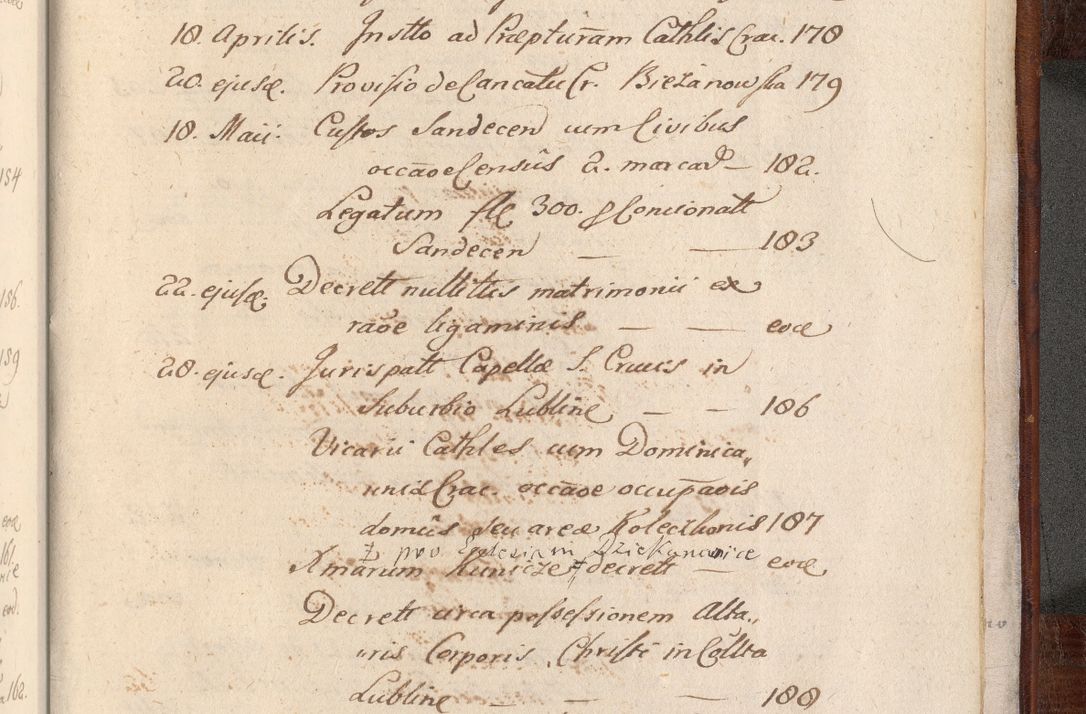 18. Aprilis. Instto ad Præpturam Cathlis Crac. 178
20. ejusd. Provisio de Cancatu Cr. Bieżanowska 179
18. Maii. Custos Sandecen cum Civibus
occãoe Censûs 2. marcar — 182.
Legatum fl 300. p Concionatt
Sandecen — — 183
22. ejusd. Decrett nullittis matrimonii ex
raõe ligaminis — — eod
28. ejusd. Jurispatt Capellæ S. Crucis in
Suburbio Lublinẽ — — 186
Vicarii Cathles cum Dominica„
nis Crac. occãoe occupãois
domûs seu areæ Kolecthonis 187
‡ pro Eclesiam Dziekanowice
Xmarum Kunicze ‡ decrett — eod
Decrett circa possessionem Alta„
„ris Corporis Christi in Collta
Lublinẽ — — 188
154
156.
159
eod
161.
eod.
162.